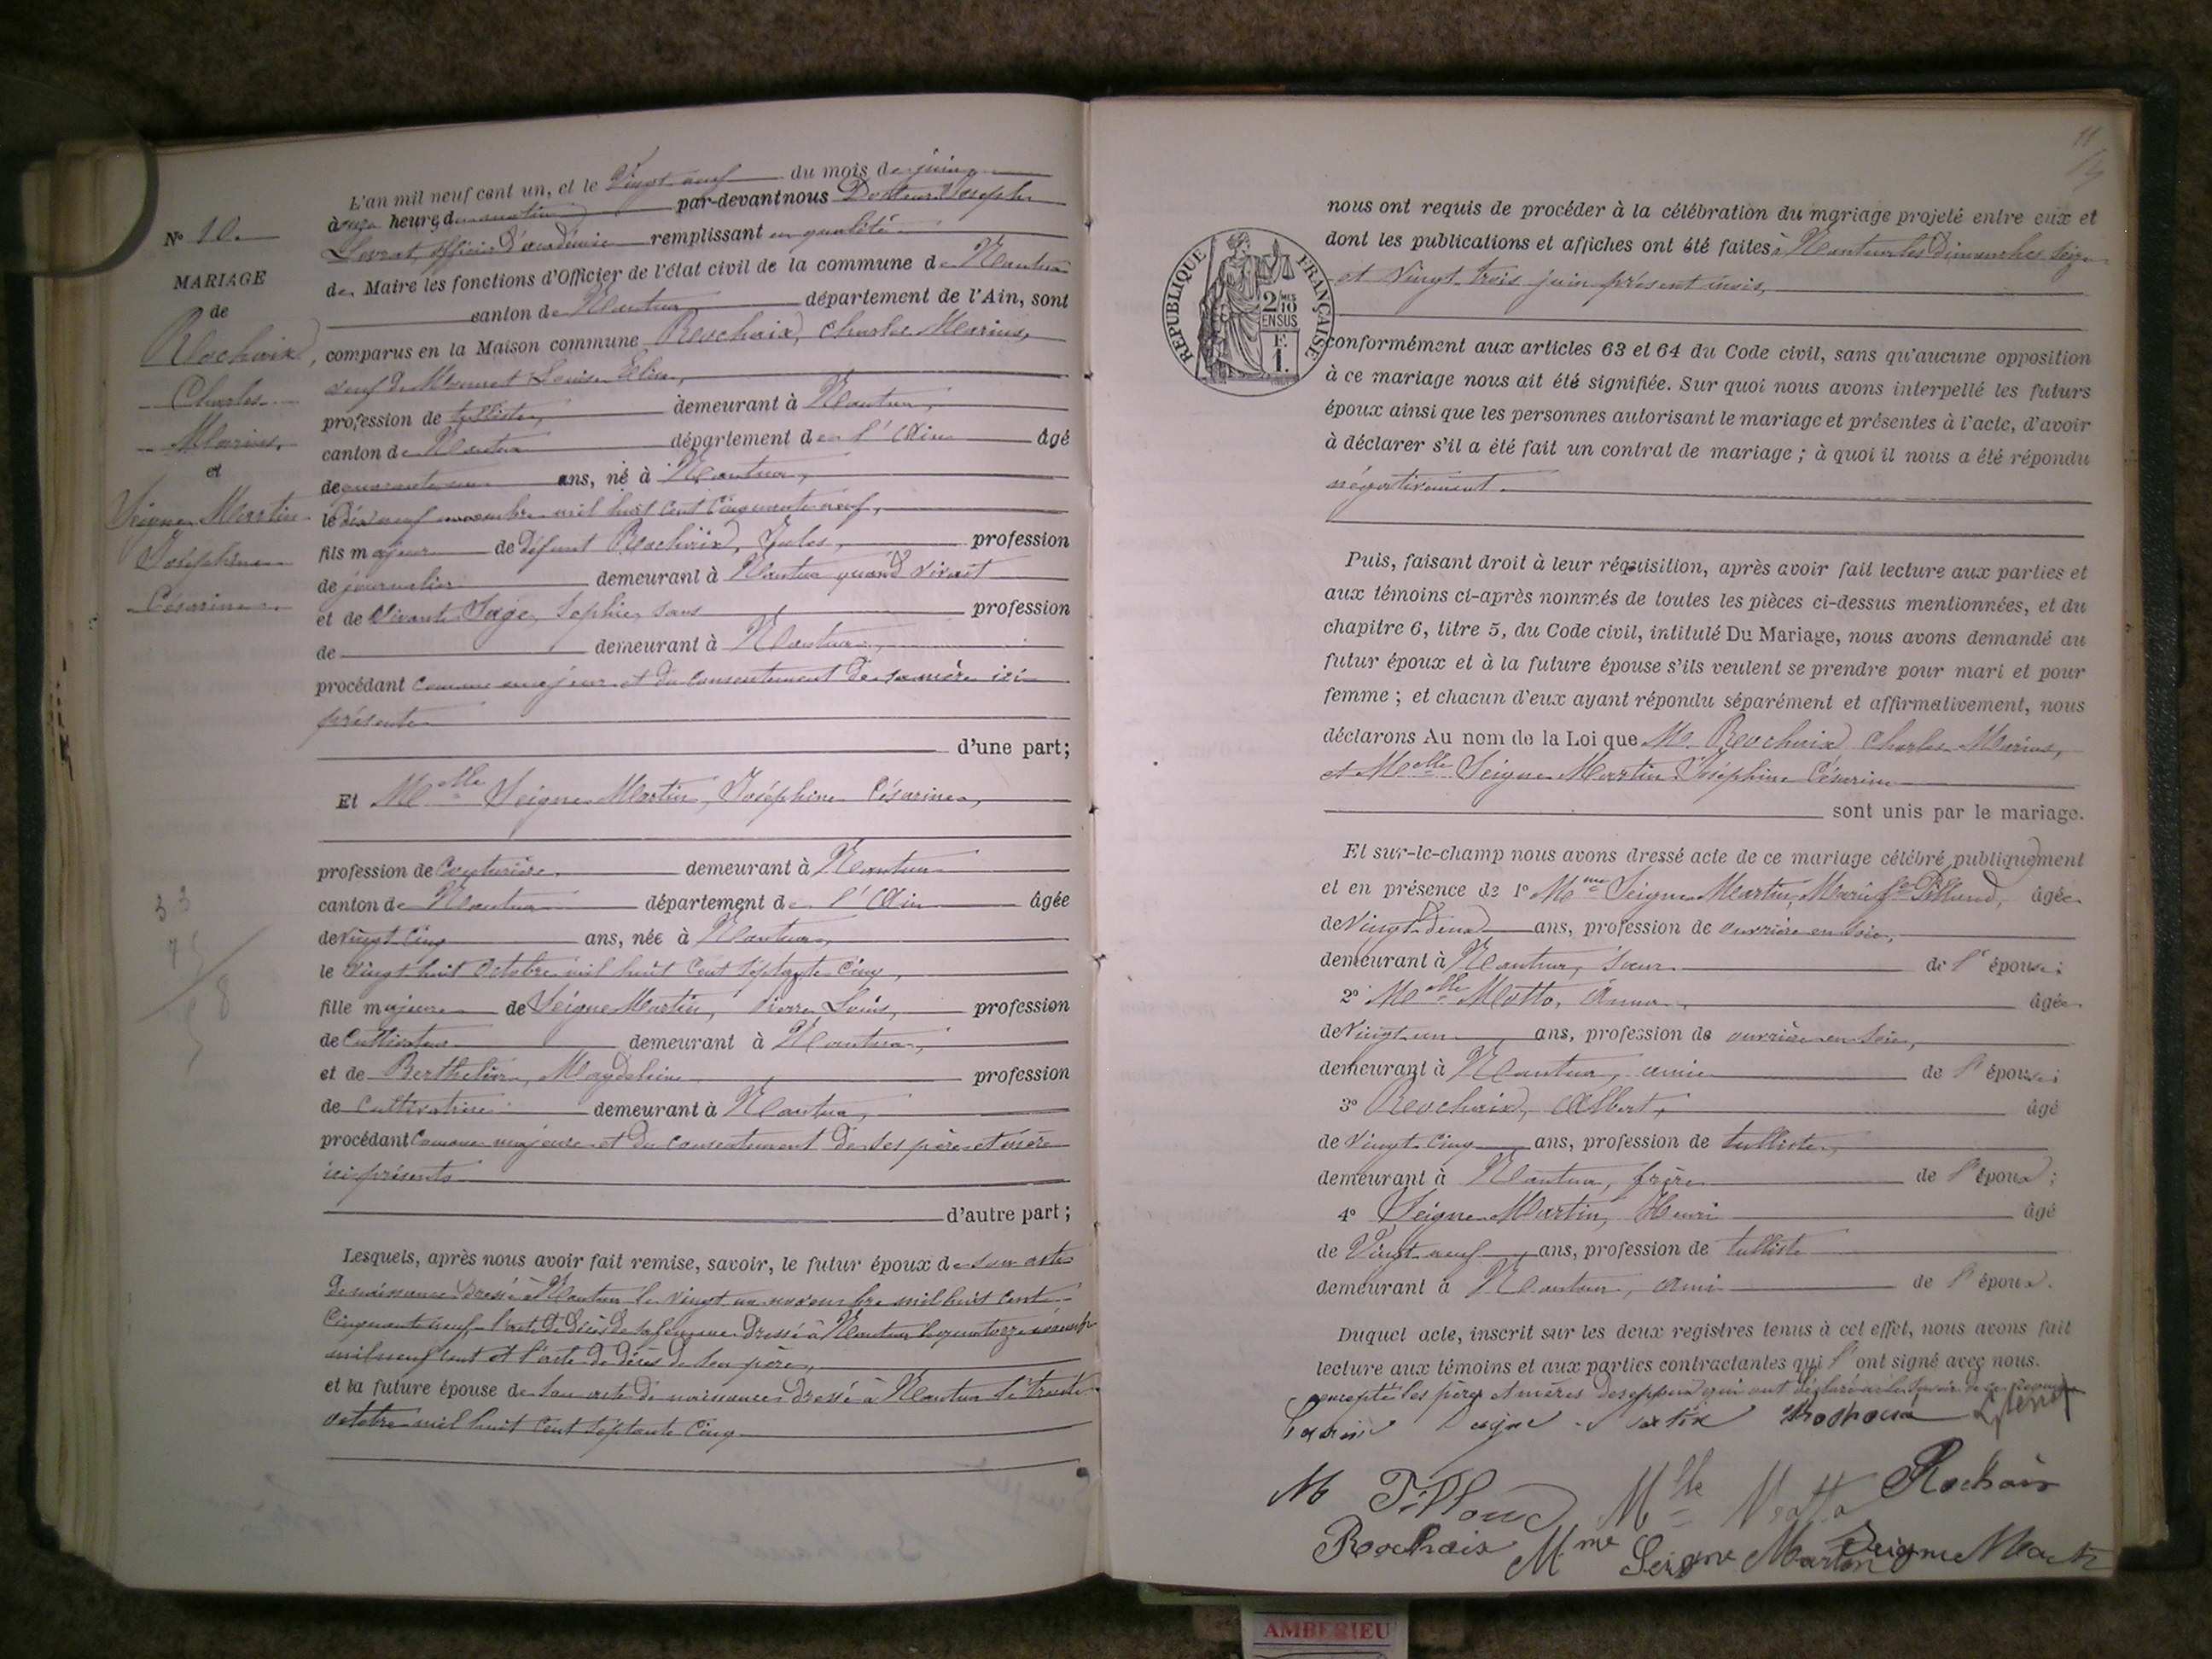 L'an mil neuf cent un, et le Vingt neuf du mois de juin
à onze heures du matin par-devant nous Docteur Joseph
Livrat, officier d'académie remplissant en qualité
de Maire les fonctions d'Officier de l'état civil de la commune de Nantua
canton de Nantua département de l'Ain, sont
comparus en la Maison commune Rochaix, Charles Marius,
veuf de Louise
profession de tulliste, demeurant à Nantua,
canton de Nantua département de l'Ain âgé
de quarante un ans, né à Nantua,
le dix neuf novembre mil huit cent cinquante neuf,
fils majeur de défunt Rochaix, Jules, profession
de journalier demeurant à Nantua quand vivait
et de vivante Sage, Sophie, sans profession
de demeurant à Nantua,
procédant comme majeur et du consentement de sa mère ici
présente
d'une part;
Nº 10.
MARIAGE
de
Rochaix,
Charles
Marius,
et
Seigne Martin
Joséphine
Césarine.
Et Melle Seigne Martin, Joséphine Césarine,
profession de Couturière demeurant à Nantua
canton de Nantua département de l'Ain âgée
de vingt cinq ans, née à Nantua,
le vingt huit octobre mil huit cent septante cinq,
fille majeure de Seigne Martin, Pierre Louis, profession
de Cultivateur demeurant à Nantua,
et de Berthelier, Magdeleine profession
de Cultivatrice demeurant à Nantua,
procédant comme majeure et du consentement de ses père et mère
ici présents
d'autre part;
Lesquels, après nous avoir fait remise, savoir, le futur époux de son acte
de naissance dressé à Nantua le vingt un novembre mil huit cent
cinquante neuf, l'acte de décès de sa femme dressé à Nantua le quatorze
mil neuf cent et l'acte de décès de son père,
et la future épouse de son acte de naissance dressé à Nantua le trente
octobre mil huit cent septante cinq
11
RÉPUBLIQUE FRANÇAISE
2 MES
10
EN SUS
F.
1.
nous ont requis de procéder à la célébration du mariage projeté entre eux et
dont les publications et affiches ont été faites à Nantua les Dimanches seize
et vingt trois juin présent mois,
conformément aux articles 63 et 64 du Code civil, sans qu'aucune opposition
à ce mariage nous ait été signifiée. Sur quoi nous avons interpellé les futurs
époux ainsi que les personnes autorisant le mariage et présentes à l'acte, d'avoir
à déclarer s'il a été fait un contrat de mariage ; à quoi il nous a été répondu
négativement.
Puis, faisant droit à leur réquisition, après avoir fait lecture aux parties et
aux témoins ci-après nommés de toutes les pièces ci-dessus mentionnées, et du
chapitre 6, titre 5, du Code civil, intitulé Du Mariage, nous avons demandé au
futur époux et à la future épouse s'ils veulent se prendre pour mari et pour
femme ; et chacun d'eux ayant répondu séparément et affirmativement, nous
déclarons Au nom de la Loi que Mr. Rochaix Charles Marius,
et Melle Seigne Martin Joséphine Césarine
sont unis par le mariage.
Et sur-le-champ nous avons dressé acte de ce mariage célébré publiquement
et en présence de 1º Mme Seigne Martin, Marie fe Tilloud, âgée
de Vingt deux ans, profession de ouvrière en soie,
demeurant à Nantua, soeur de l'épouse;
2º Melle Motto, Anna, âgée
de vingt un ans, profession de ouvrière en soie,
demeurant à Nantua, amie de l'épouse;
3º Rochaix, Albert, âgé
de vingt cinq ans, profession de tulliste,
demeurant à Nantua, frère de l'époux;
4º Seigne Martin, Henri âgé
de Vingt neuf ans, profession de tulliste
demeurant à Nantua, ami de l'époux.
Duquel acte, inscrit sur les deux registres tenus à cet effet, nous avons fait
lecture aux témoins et aux parties contractantes qui l'ont signé avec nous.
excepté les pères et mères des époux qui ont déclaré ne le savoir de ce requis
Seigne
M Tilloud Mlle Motto Rochaix
Rochaix Mme Seigne Martin Seigne Martin
AMBERIEU